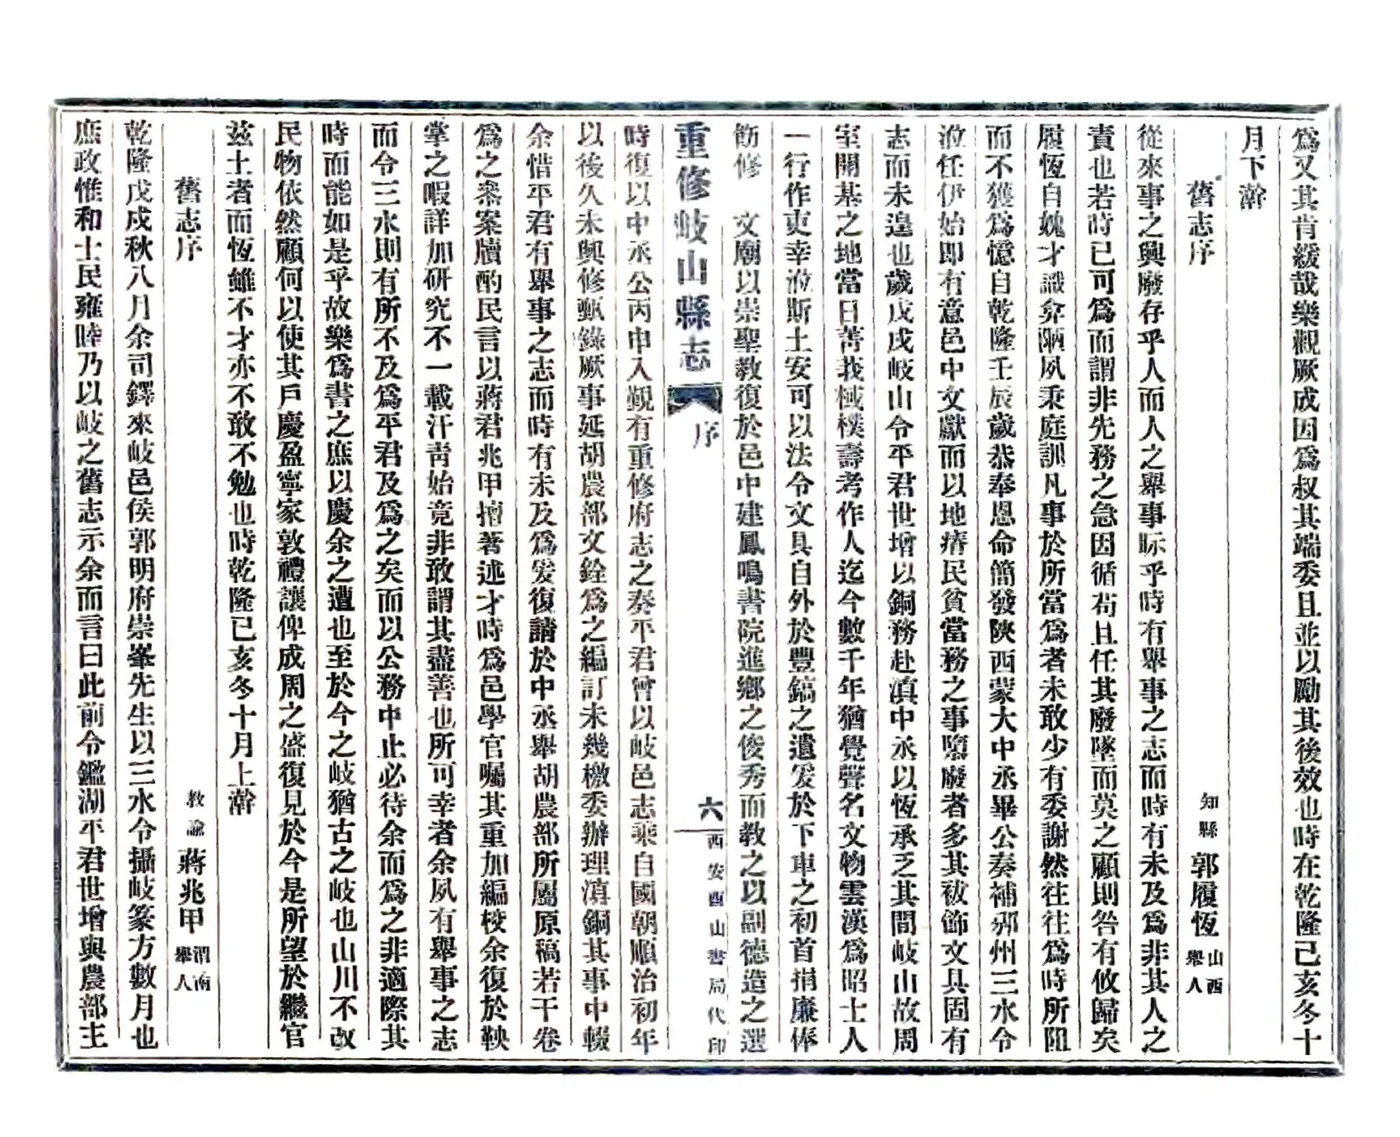 爲又其肯緩哉樂觀厥成因爲叔其端委且並以勵其後效也時在乾隆己亥冬十
月下澣
舊志序　知縣　郭履恆　山西舉人
從來事之興廢存乎人而人之舉事眎乎時有舉事之志而時有未及爲非其人之
責也若時已可爲而謂非先務之急因循苟且任其廢墜而莫之顧則咎有攸歸矣
履恆自媿才識弇陋夙秉庭訓凡事於所當爲者未敢少有委謝然往往爲時所阻
而不獲爲憶自乾隆壬辰歲恭奉恩命簡發陝西蒙大中丞畢公奏補邠州三水令
涖任伊始即有意邑中文獻而以地瘠民貧當務之事隳廢者多其袚飾文具固有
志而未遑也歲戊戌岐山令平君世增以銅務赴滇中丞以恆承乏其間岐山故周
室開基之地當日菁莪棫樸壽考作人迄今數千年猶覺聲名文物雲漢爲昭士人
一行作吏幸涖斯土安可以法令文具自外於豐鎬之遺爰於下車之初首捐廉俸
飭修　文廟以崇聖教復於邑中建鳳鳴書院進鄉之俊秀而教之以副德造之選
重修岐山縣志　序　六　西安酉山書局代印
時復以中丞公丙申入覲有重修府志之奏平君曾以岐邑志乘自國朝順治初年
以後久未興修甄錄厥事延胡農部文銓爲之編訂未幾檄委辦理滇銅其事中輟
余惜平君有舉事之志而時有未及爲爰復請於中丞舉胡農部所屬原稿若干卷
爲之叅案牘酌民言以蔣君兆甲擅著述才時爲邑學官囑其重加編校余復於鞅
掌之暇詳加研究不一載汗靑始竟非敢謂其盡善也所可幸者余夙有舉事之志
而令三水則有所不及爲平君及爲之矣而以公務中止必待余而爲之非適際其
時而能如是乎故樂爲書之庶以慶余之遭也至於今之岐猶古之岐也山川不改
民物依然顧何以使其戶慶盈寧家敦禮讓俾成周之盛復見於今是所望於繼官
茲土者而恆雖不才亦不敢不勉也時乾隆己亥冬十月上澣
舊志序　教諭　蔣兆甲　渭南舉人
乾隆戊戌秋八月余司鐸來岐邑侯郭明府崇峯先生以三水令攝岐篆方數月也
庶政惟和士民雍睦乃以岐之舊志示余而言曰此前令鑑湖平君世增與農部主